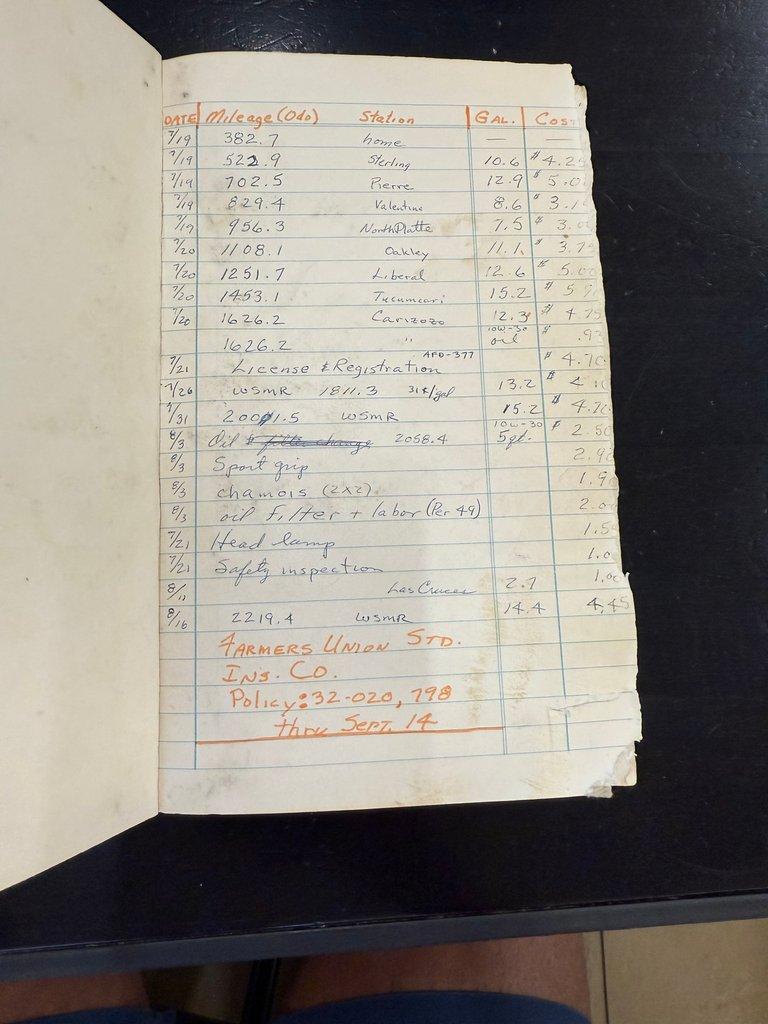 DATE Mileage (Odo) Station GAL. COST
7/19 382.7 home — —
7/19 522.9 Sterling 10.6 $4.25
7/19 702.5 Pierre 12.9 $5.0
7/19 829.4 Valentine 8.6 $3.1
7/19 956.3 North Platte 7.5 $3.00
7/20 1108.1 Oakley 11.1 $3.75
7/20 1251.7 Liberal 12.6 $5.00
7/20 1453.1 Tucumcari 15.2 $5.9
7/20 1626.2 Carizozo 12.3 $4.75
1626.2 " 10W-30 oil $.93
7/21 License & Registration AFD-377 $4.70
7/26 WSMR 1811.3 31¢/gal 13.2 $4.10
7/31 2001.5 WSMR 15.2 $4.70
8/3 Oil & filter change 2058.4 10W-30 5qt. $2.50
8/3 Sport grip 2.9
8/3 chamois (2x2) 1.9
8/3 oil filter + labor (Per 49) 2.00
7/21 Head lamp 1.5
7/21 Safety inspection 1.0
8/11 Las Cruces 2.7 1.00
8/16 2219.4 WSMR 14.4 4.45
FARMERS UNION STD.
INS. CO.
Policy: 32-020, 798
thru Sept. 14